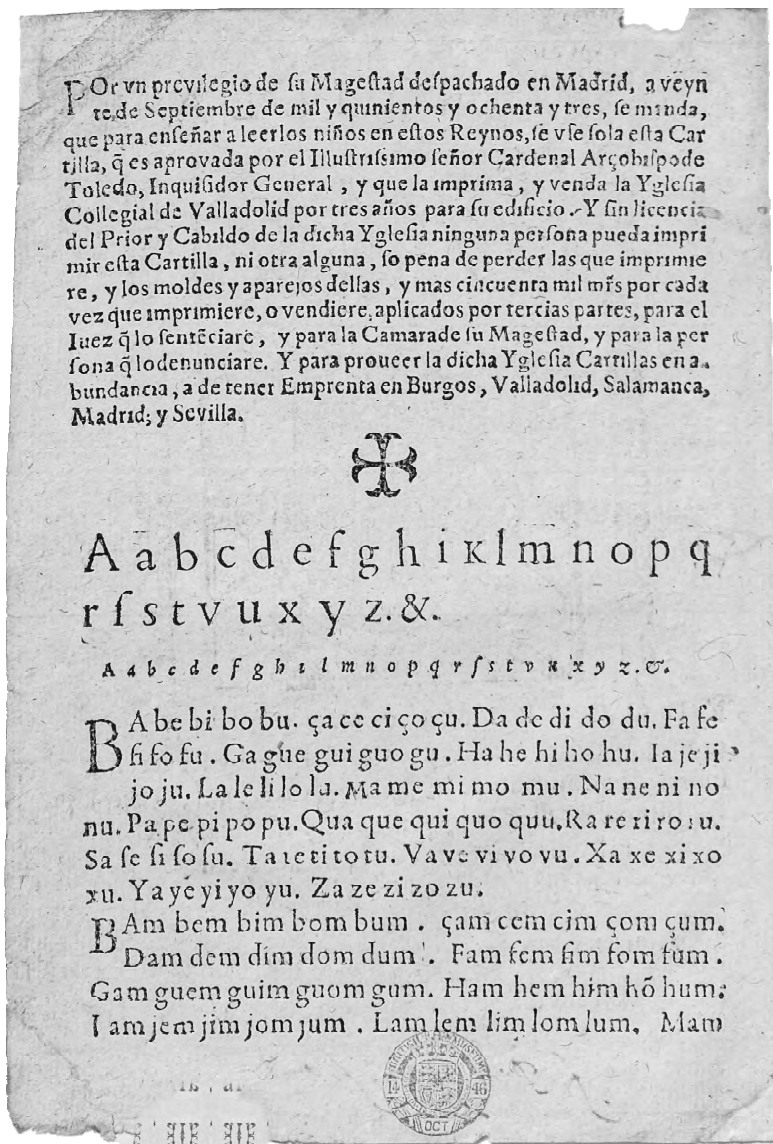 POr vn previlegio de ſu Mageſtad deſpachado en Madrid, a veyn
te de Septiembre de mil y quinientos y ochenta y tres, ſe manda,
que para enſeñar a leer los niños en eſtos Reynos, ſe vſe ſola eſta Car
tilla, q̃ es aprovada por el Illuſtriſsimo ſeñor Cardenal Arçobiſpo de
Toledo, Inquiſidor General, y que la imprima, y venda la Ygleſia
Collegial de Valladolid por tres años para ſu edificio. Y ſin licencia
del Prior y Cabildo de la dicha Ygleſia ninguna perſona pueda impri
mir eſta Cartilla, ni otra alguna, ſo pena de perder las que imprimie
re, y los moldes y aparejos dellas, y mas cincuenta mil mr̃s por cada
vez que imprimiere, o vendiere, aplicados por tercias partes, para el
Iuez q̃ lo ſentẽciare, y para la Camara de ſu Mageſtad, y para la per
ſona q̃ lo denunciare. Y para proueer la dicha Ygleſia Cartillas en a
bundancia, a de tener Emprenta en Burgos, Valladolid, Salamanca,
Madrid, y Sevilla.
A a b c d e f g h i K l m n o p q
r ſ s t v u x y z. &.
A a b c d e f g h i l m n o p q r ſ s t v u x y z. &.
BA be bi bo bu. ça ce ci ço çu. Da de di do du. Fa fe
fi fo fu. Ga gue gui guo gu. Ha he hi ho hu. Ia je ji
jo ju. La le li lo lu. Ma me mi mo mu. Na ne ni no
nu. Pa pe pi po pu. Qua que qui quo quu. Ra re ri ro ru.
Sa ſe ſi ſo ſu. Ta te ti to tu. Va ve vi vo vu. Xa xe xi xo
xu. Ya ye yi yo yu. Za ze zi zo zu.
BAm bem bim bom bum. çam cem cim çom çum.
Dam dem dim dom dum. Fam fem fim fom fum.
Gam guem guim guom gum. Ham hem him hõ hum.
Iam jem jim jom jum. Lam lem lim lom lum. Mam
14 46
OCT